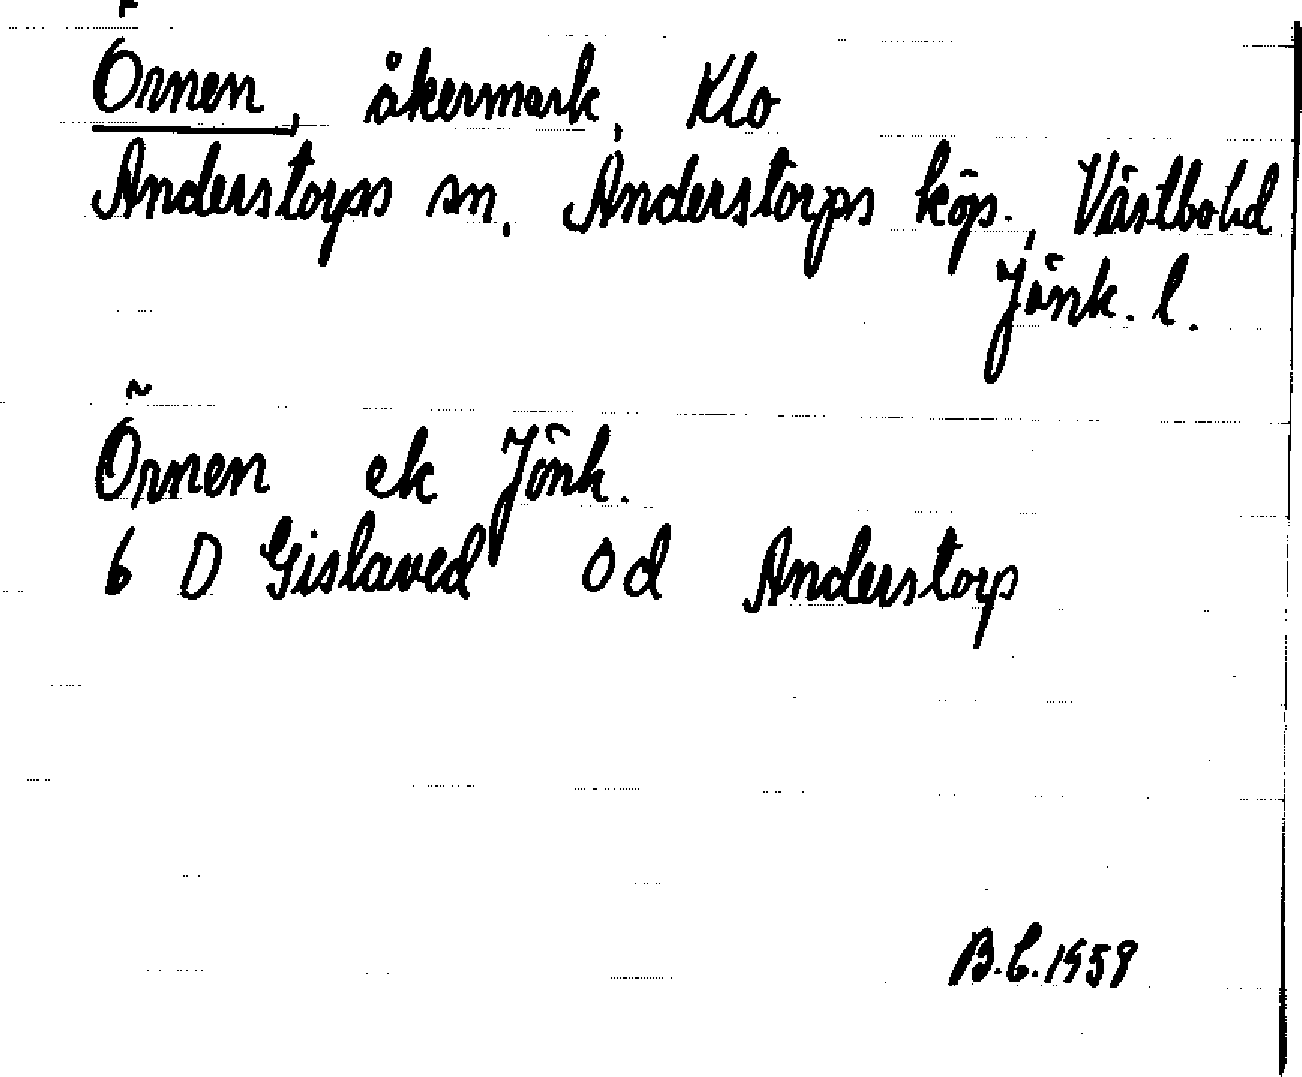 Örnen, åkermark, Klo
Anderstorps sn. Anderstorps köp., Västbo hd
Jönk. l.
Örnen ek Jönk.
6 D Gislaved 0 d Anderstorp
B.C. 1959